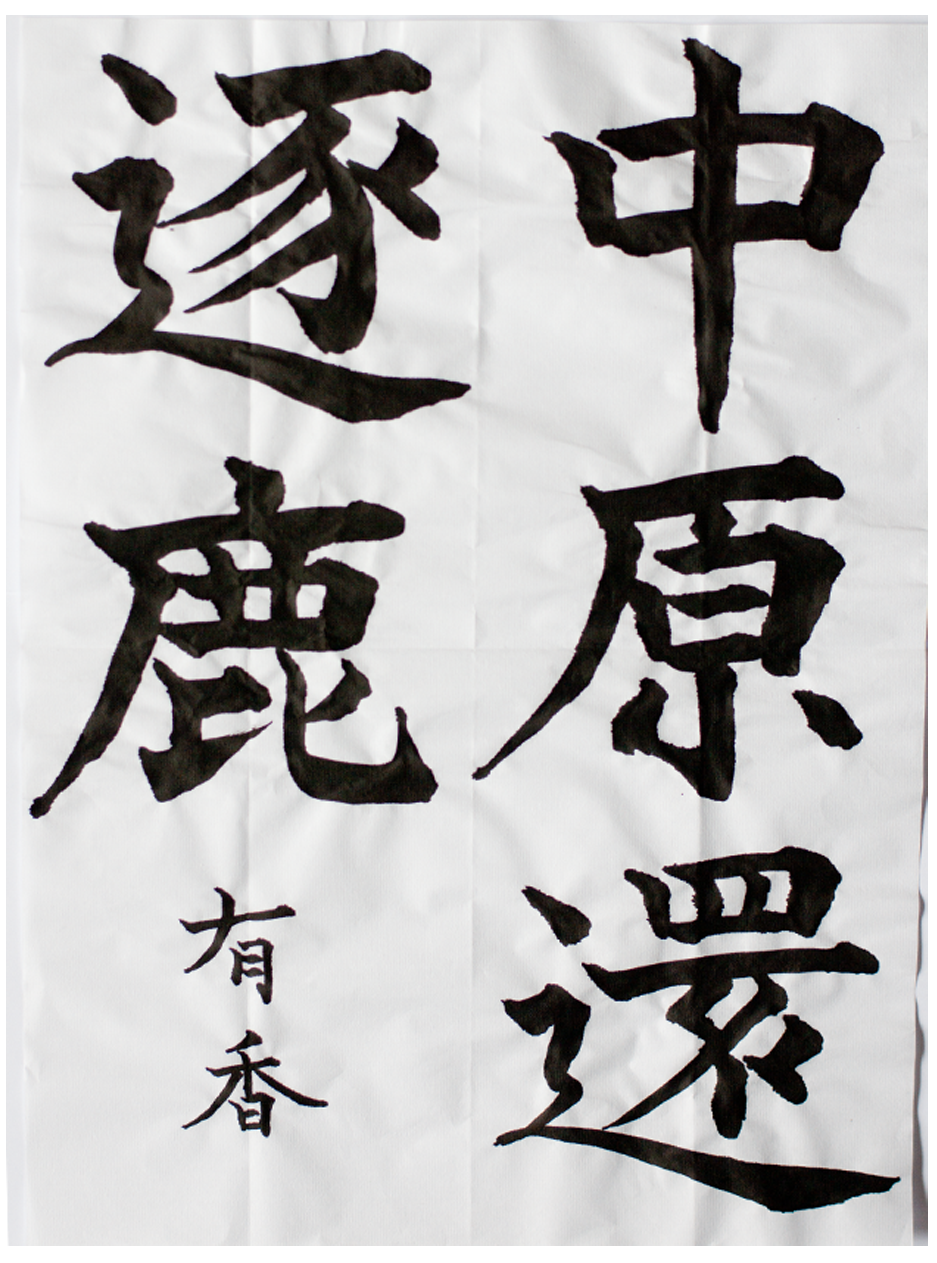 中原還
逐鹿
有香